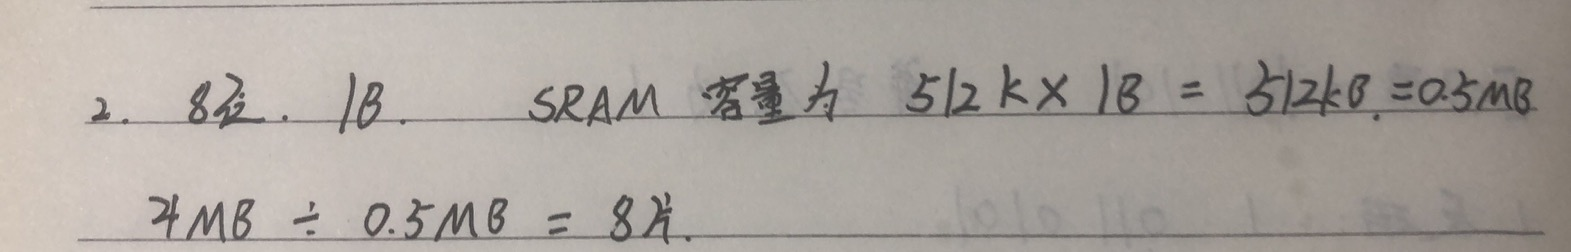 2. 8位. 1B. SRAM 容量为 512k×1B = 512kB.=0.5MB
4MB ÷ 0.5MB = 8片.